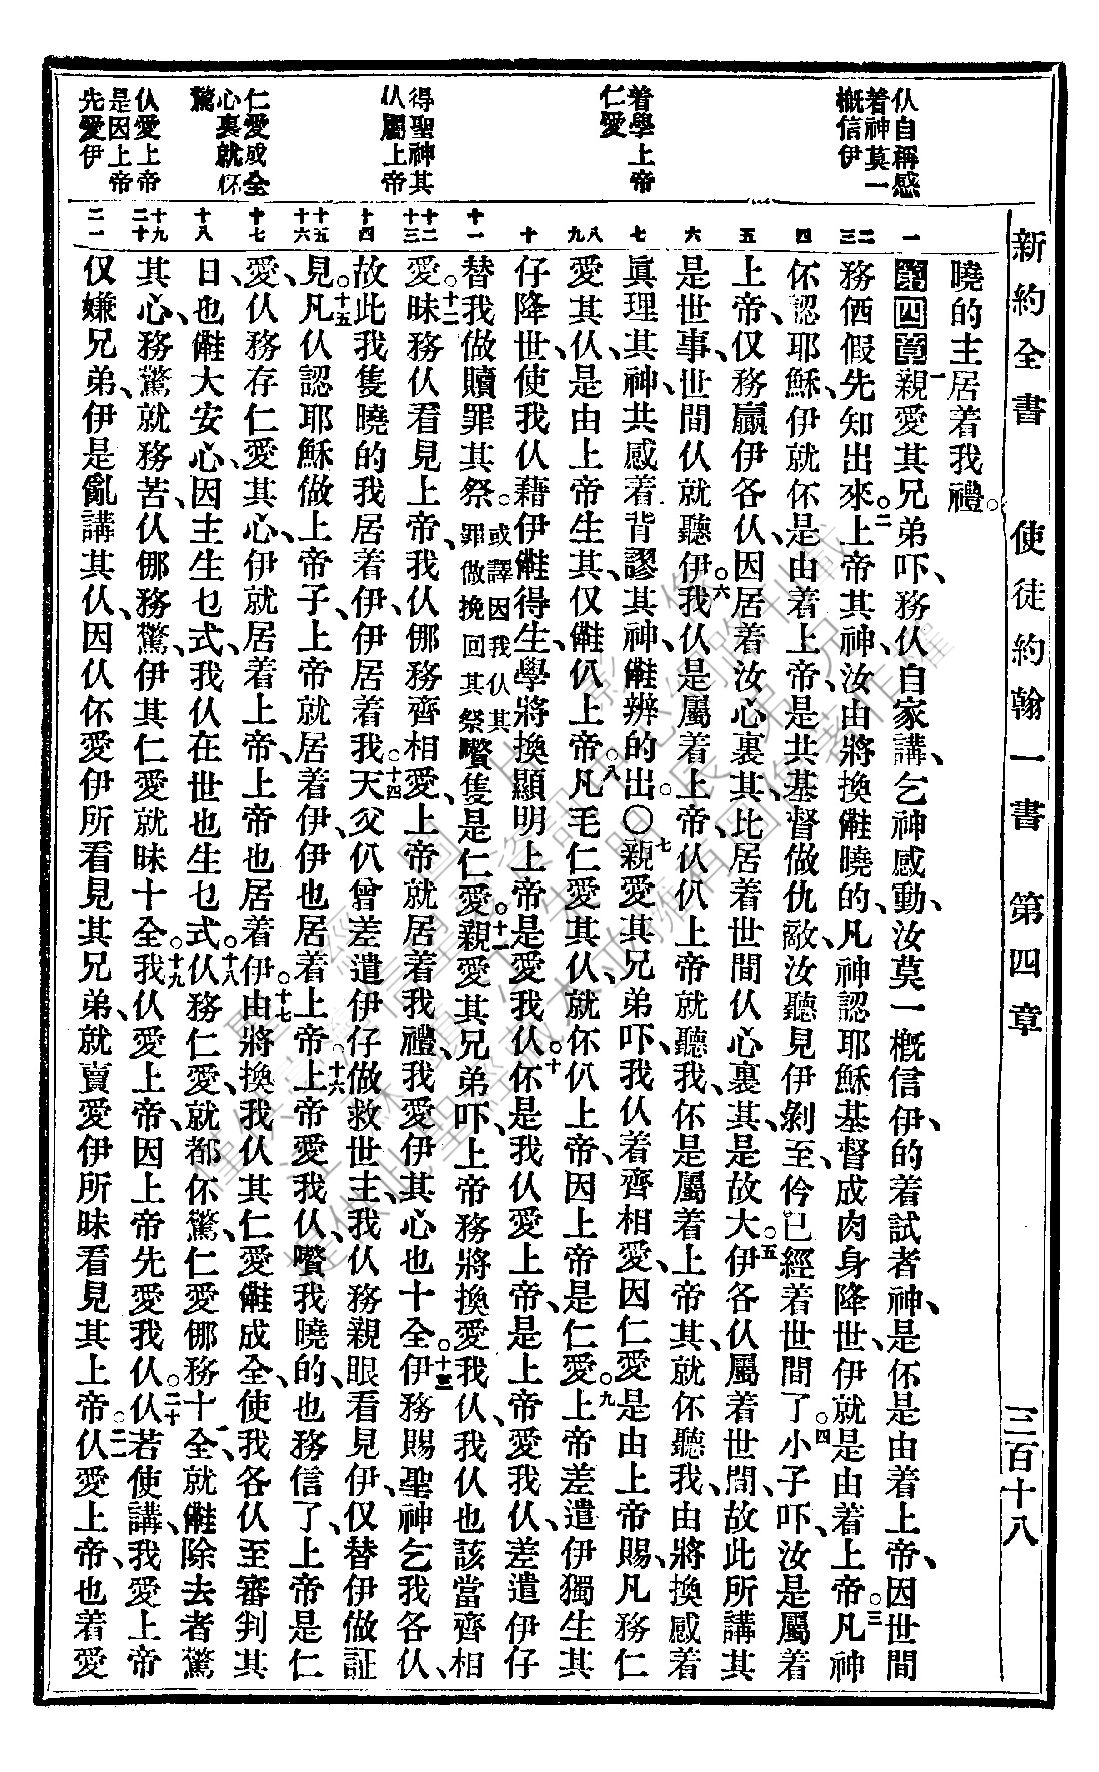 新約全書　使徒約翰一書　第四章　三百十八
仈自稱感
着神莫一
概信伊
着學上帝
仁愛
得聖神其
仈屬上帝
仁愛成全
心裏就伓
驚
仈愛上帝
是因上帝
先愛伊
曉的主居着我禮。
一 第四章一親愛其兄弟吓、務仈自家講、乞神感動、汝莫一概信伊、的着試者神、是伓是由着上帝、因世間
二 三 務価假先知出來。二上帝其神、汝由將換䧹曉的、凡神認耶穌基督成肉身降世、伊就是由着上帝。三凡神
四 伓認耶穌、伊就伓是由着上帝、是共基督做仇敵、汝聽見伊剝至、伶已經着世間了。四小子吓、汝是屬着
五 上帝、仅務贏伊各仈、因居着汝心裏其、比居着世間仈心裏其、是故大。五伊各仈屬着世間、故此所講其
六 是世事、世間仈就聽伊。六我仈是屬着上帝、仈仈上帝就聽我、伓是屬着上帝其、就伓聽我、由將換感着
七 眞理其神、共感着背謬其神、䧹辨的出。〇七親愛其兄弟吓、我仈着齊相愛、因仁愛是由上帝賜、凡務仁
八 九 愛其仈、是由上帝生其、仅䧹仈上帝。八凡毛仁愛其仈、就伓仈上帝、因上帝是仁愛。九上帝差遣伊獨生其
十 仔降世、使我仈藉伊䧹得生、學將換顯明上帝是愛我仈。十伓是我仈愛上帝、是上帝愛我仈、差遣伊仔
十一 替我做贖罪其祭。或譯因我仈其罪做挽回其祭嚽隻是仁愛。十一親愛其兄弟吓、上帝務將換愛我仈、我仈也該當齊相
十二 十三 愛。十二昧務仈看見上帝、我仈㑚務齊相愛、上帝就居着我禮、我愛伊其心也十全。十三伊務賜聖神乞我各仈、
十四 故此我隻曉的我居着伊、伊居着我。十四天父仈曾差遣伊仔做救世主、我仈務親眼看見伊、仅替伊做証
十五 十六 見。十五凡仈認耶穌做上帝子、上帝就居着伊、伊也居着上帝。十六上帝愛我仈、嚽我曉的、也務信了、上帝是仁
十七 愛、仈務存仁愛其心、伊就居着上帝、上帝也居着伊。十七由將換我仈其仁愛䧹成全、使我各仈至審判其
十八 日也䧹大安心、因主生乜式、我仈在世也生乜式。十八仈務仁愛、就都伓驚、仁愛㑚務十全、就䧹除去者驚
十九 二十 其心、務驚就務苦、仈㑚務驚、伊其仁愛就昧十全。十九我仈愛上帝、因上帝先愛我仈。二十仈若使講、我愛上帝
二一 仅嫌兄弟、伊是亂講其仈、因仈伓愛伊所看見其兄弟、就賣愛伊所昧看見其上帝。二一仈愛上帝、也着愛